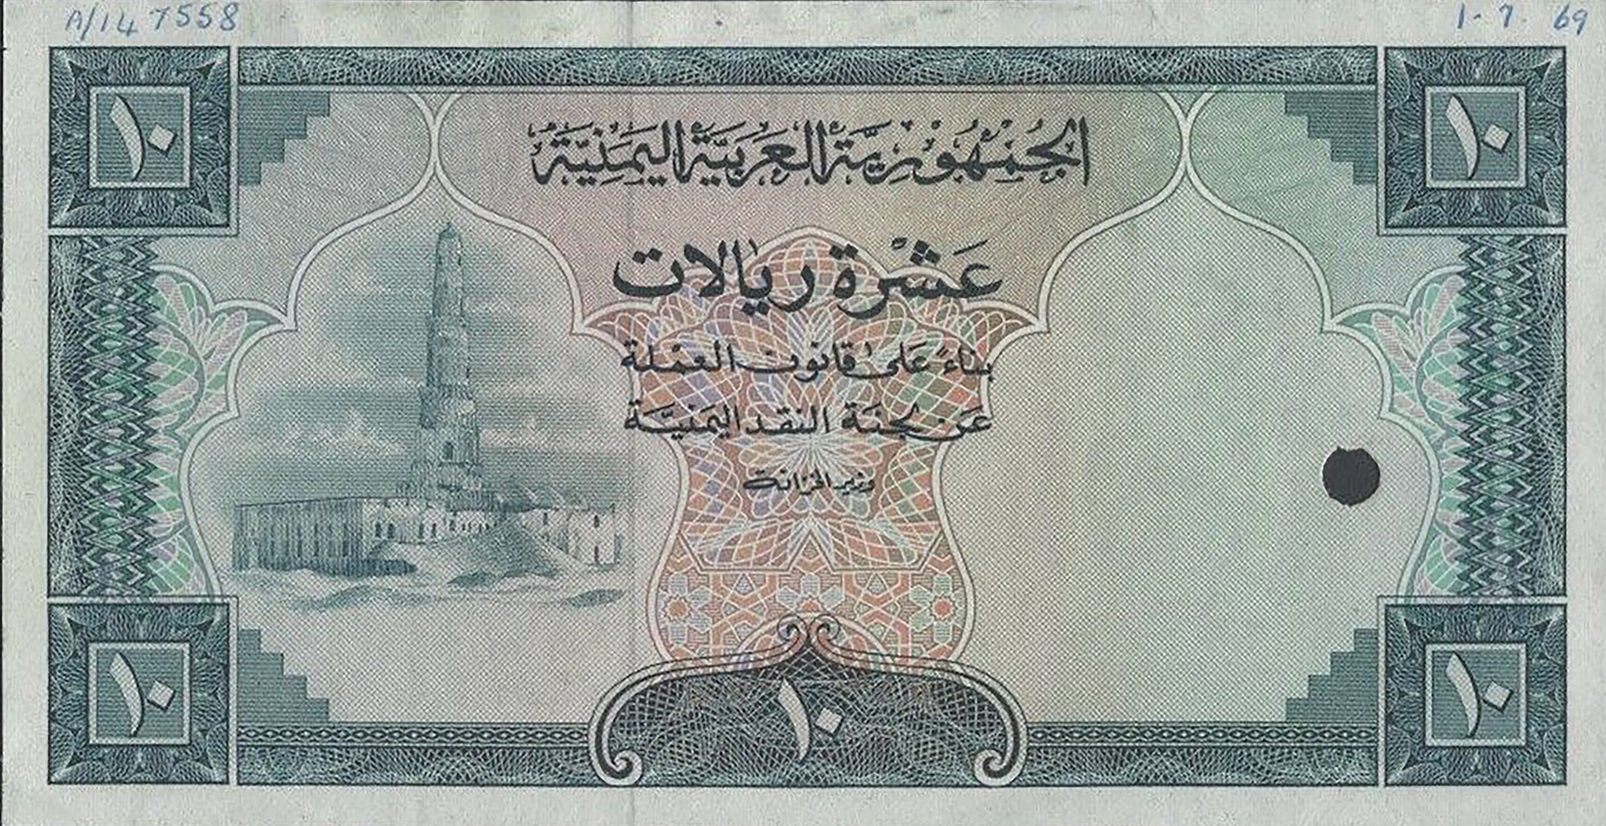 A/14 7558
1-7 69
١٠
١٠
الجُمْهُورِيَّة العَرَبِيَّة اليَمَنِيَّة
عَشْرَة ريَالات
بناءً عَلى قانون العمْلة
عَن لجنَة النقد اليَمَنيَّة
وزير الخزانة
١٠
١٠
١٠